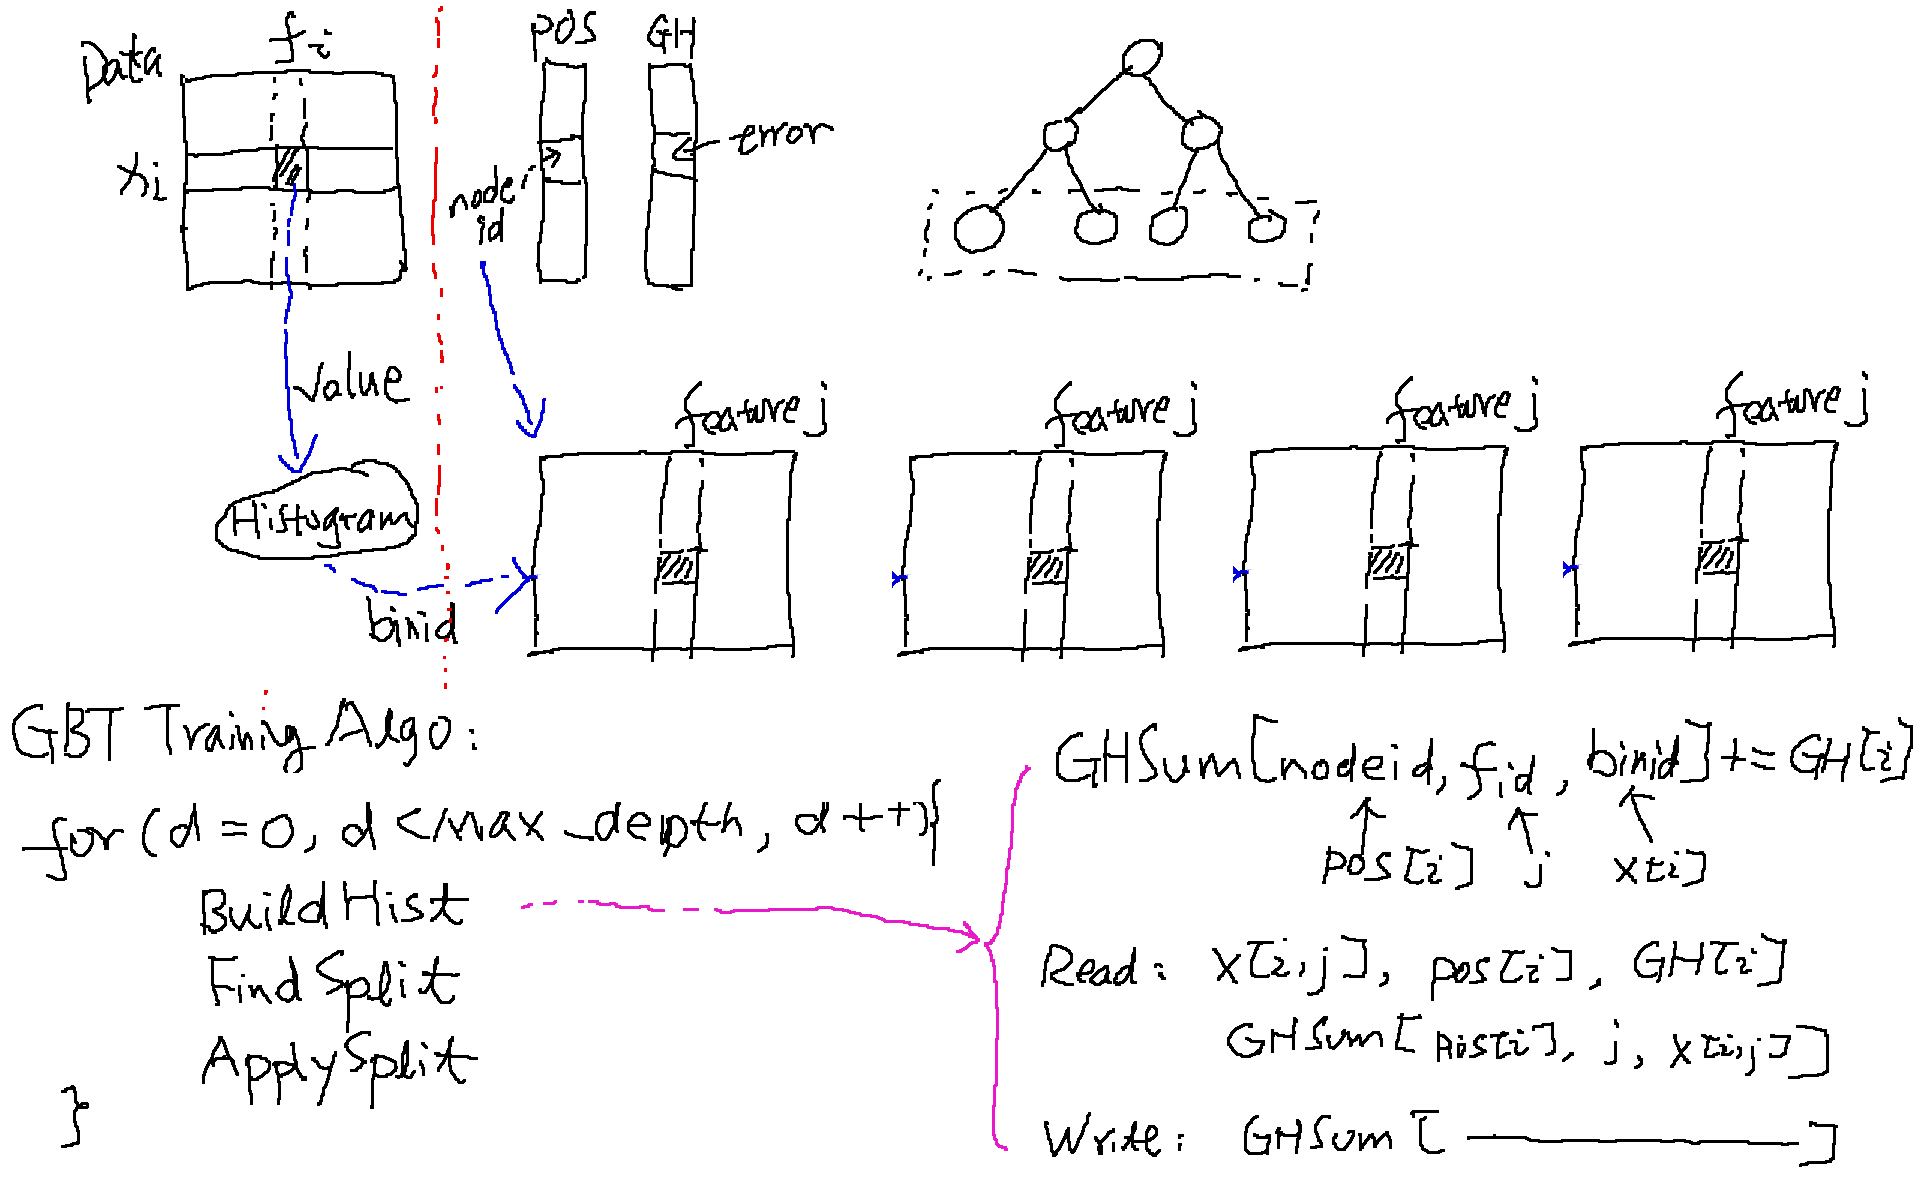 Data
fi
POS
GH
xi
node
id
error
value
feature j
feature j
feature j
feature j
Histogram
binid
GBT Training Algo:
for (d = 0, d < max_depth, d++){
BuildHist
FindSplit
ApplySplit
}
GHSum[nodeid, fid, binid] += GH[i]
pos[i] j x[i]
Read: x[i,j], pos[i], GH[i]
GHSum[pos[i], j, x[i,j]]
Write: GHSum[ ]